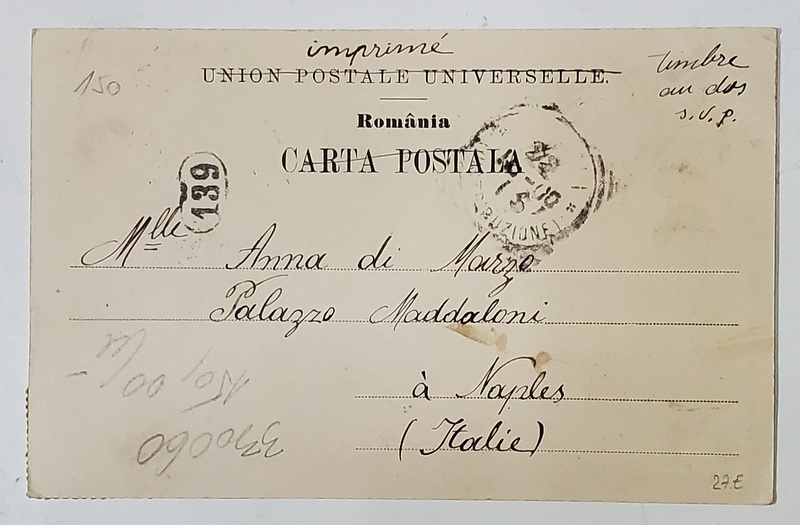 imprimé
UNION POSTALE UNIVERSELLE.
timbre
au dos
s.v.p.
150
România
CARTA POSTALA
139
Mlle Anna di Marzo
Palazzo Maddaloni
à Naples
(Italie)
150,00 lei
330060
27 €